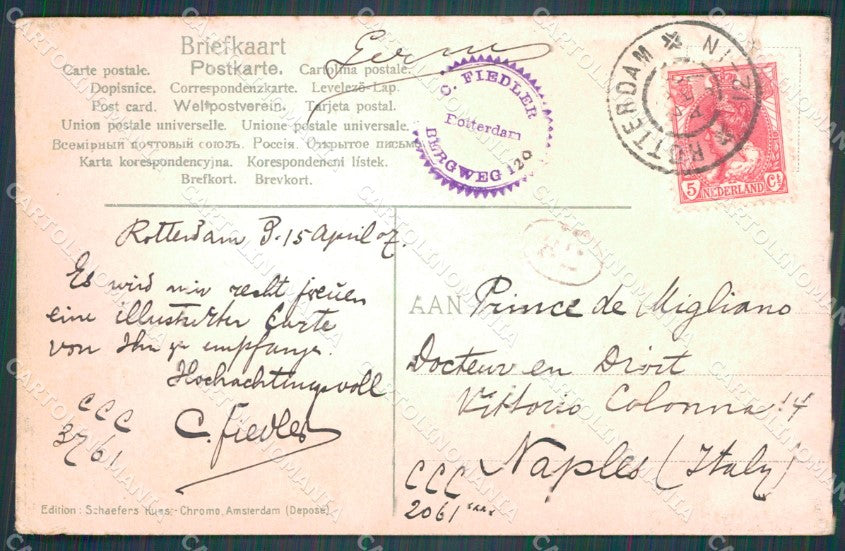 Briefkaart
Carte postale. Postkarte. Cartolina postale.
Dopisnice. Correspondenzkarte. Levelező-Lap.
Post card. Weltpostverein. Tarjeta postal.
Union postale universelle. Unione postale universale.
Всемірный почтовый союзъ. Россія. Открытое письмо
Karta korespondencyjna. Korespondenční lístek.
Brefkort. Brevkort.
C. FIEDLER
Rotterdam
BERGWEG 120
ROTTERDAM
5 NEDERLAND Ct
Rotterdam 15 April 07.
Es wird mir recht freuen
eine illustrierter Carte
von Ihn zu empfange.
Hochachtungsvoll
C. Fiedler
CCC
3761
AAN Prince de Migliano
Docteur en Droit
Vittorio Colonna 14
Naples (Italy)
CCC
2061
Edition: Schaefers Kuns.-Chromo, Amsterdam (Déposé)
CARTOLINOMANIA